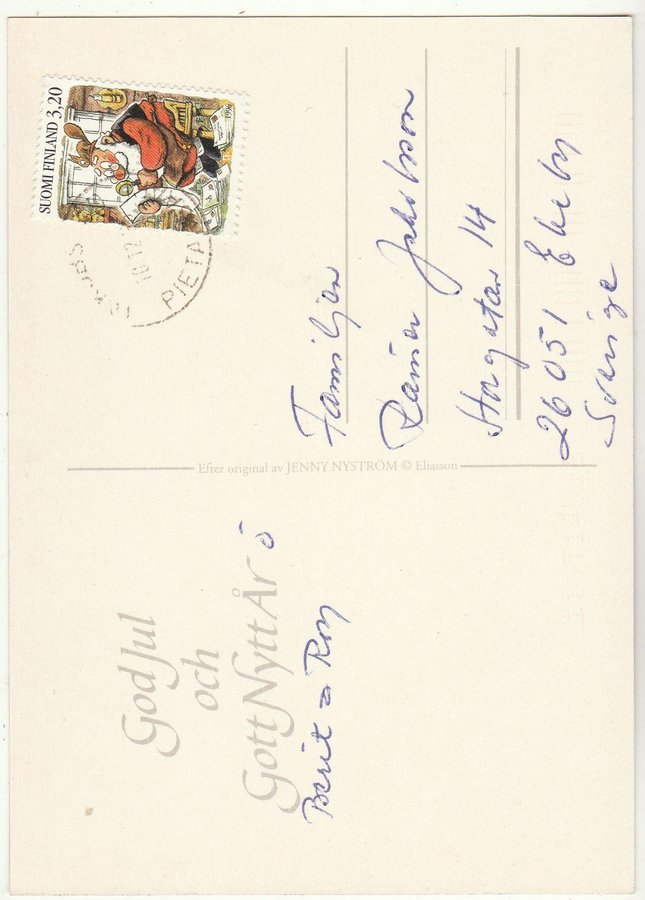 SUOMI FINLAND 3,20
1996
PIETA
Familjen
Rainer Jakobsson
Hagatan 14
26051 Ekeby
Sverige
Efter original av JENNY NYSTRÖM © Eliasson
God Jul
och
Gott Nytt År ö
Berit o Roy